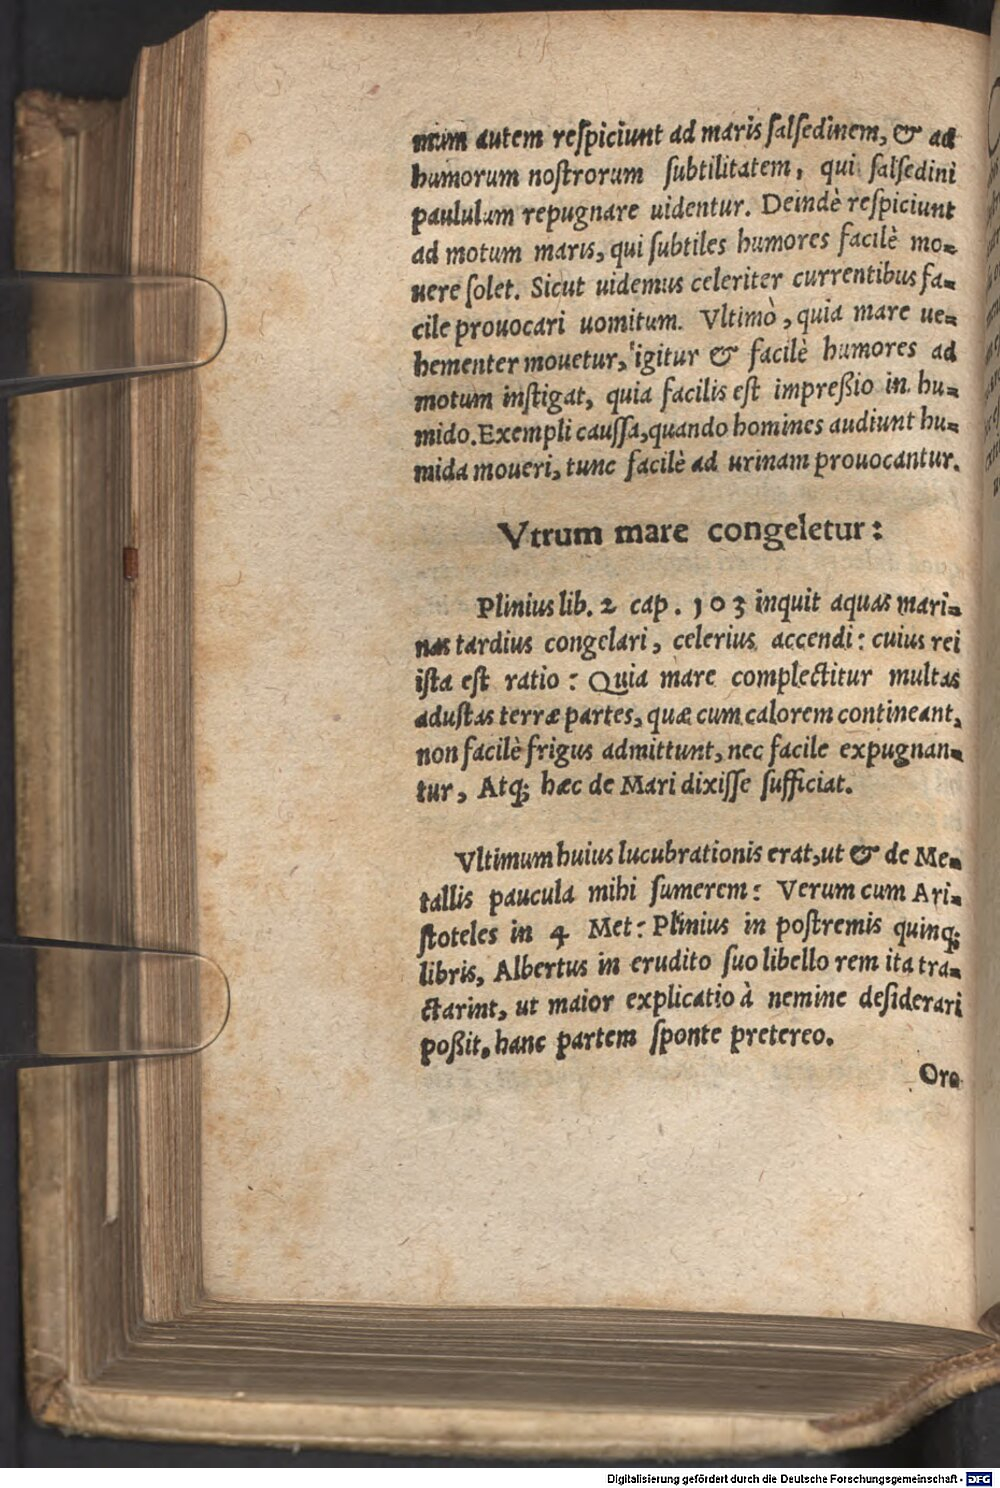 mum autem reſpiciunt ad maris ſalſedinem, & ad
humorum noſtrorum ſubtilitatem, qui ſalſedini
paululum repugnare uidentur. Deindè reſpiciunt
ad motum maris, qui ſubtiles humores facilè mo-
uere ſolet. Sicut uidemus celeriter currentibus fa-
cile prouocari uomitum. Vltimò, quia mare ue-
hementer mouetur, igitur & facilè humores ad
motum inſtigat, quia facilis eſt impreßio in hu-
mido. Exempli cauſſa, quando homines audiunt hu-
mida moueri, tunc facilè ad urinam prouocantur.
Vtrum mare congeletur:
Plinius lib. 2 cap. 103 inquit aquas mari-
nas tardius congelari, celerius accendi: cuius rei
iſta eſt ratio: Quia mare complectitur multas
aduſtas terræ partes, quæ cum calorem contineant,
non facilè frigus admittunt, nec facile expugnan-
tur, Atq; hæc de Mari dixiſſe ſufficiat.
Vltimum huius lucubrationis erat, ut & de Me-
tallis paucula mihi ſumerem: Verum cum Ari-
ſtoteles in 4 Met: Plinius in poſtremis quinq;
libris, Albertus in erudito ſuo libello rem ita tra-
ctarint, ut maior explicatio à nemine deſiderari
poßit, hanc partem ſponte pretereo.
Oro
Digitalisierung gefördert durch die Deutsche Forschungsgemeinschaft - DFG